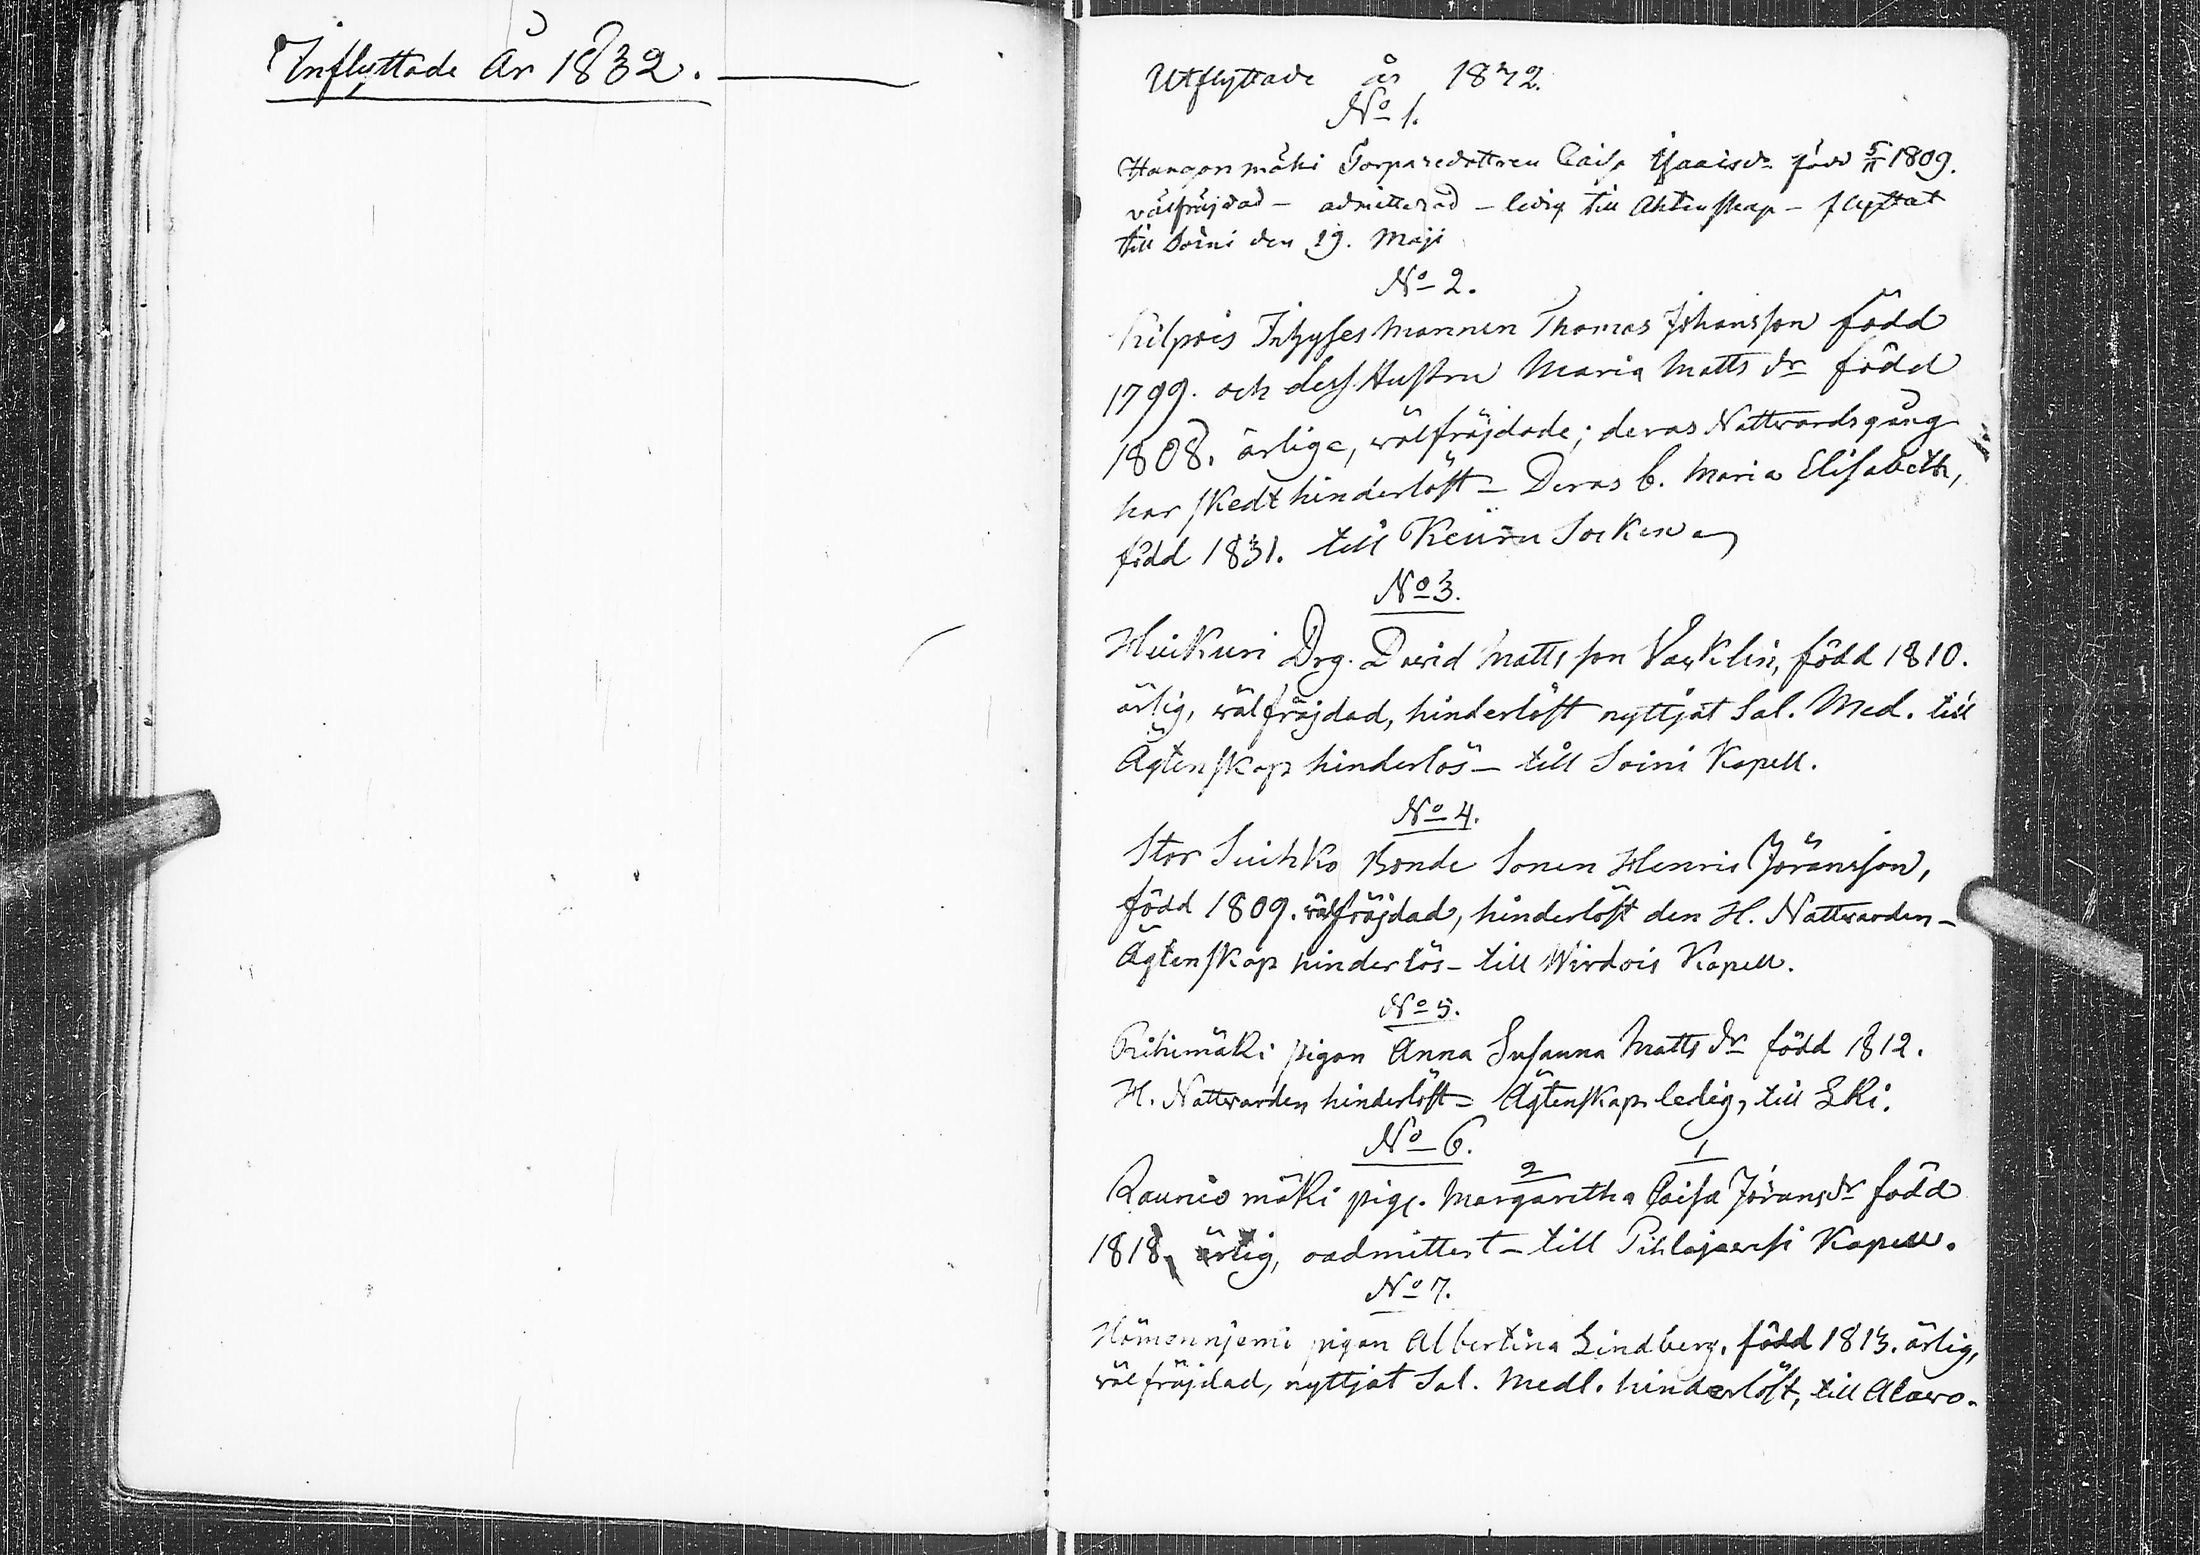 Inflyttade År 1832.
Utflyttade år 1832.
No 1.
Hangonmäki Torparedottren Caisa Isaacsdr född 5/11 1809.
välfräjdad – admitterad – ledig till Äktenskap – flyttat
till Soini den 19. Maji
No 2.
Kilpois Inhysesmannen Thomas Johansson född
1799. och dess Hustru Maria Matts dr född
1808. ärlige, wälfräjdade; deras Nattwardsgång
har skedt hinderlöst – Deras b. Maria Elisabeth,
född 1831. till Keuru Socken
No 3.
Huikuri Drg. David Mattsson Vasklin, född 1810.
ärlig, wälfräjdad, hinderlöst nyttjat Sal. Med. till
Ägtenskap hinderlös – till Soini Kapell.
No 4.
Stor Suihko Bonde Sonen Henric Jöransson,
född 1809. wälfräjdad, hinderlöst den H. Nattwarden –
Ägtenskap hinderlös – till Wirdois Kapell.
No 5.
Rihimäki pigan Anna Susanna Matts dr född 1812.
H. Nattwarden hinderlöst – Ägtenskaps ledig, till
No 6.
2 1
Raunio mäki pig. Margaretha Caisa Jöransdr född
1818, ärlig, oadmittert – till Pihlajawesi Kapell.
No 7.
Hömennjemi pigan Albertina Lindberg. född 1813. ärlig,
wälfräjdad, nyttjat Sal. Medl. hinderlöst, till Alawo.